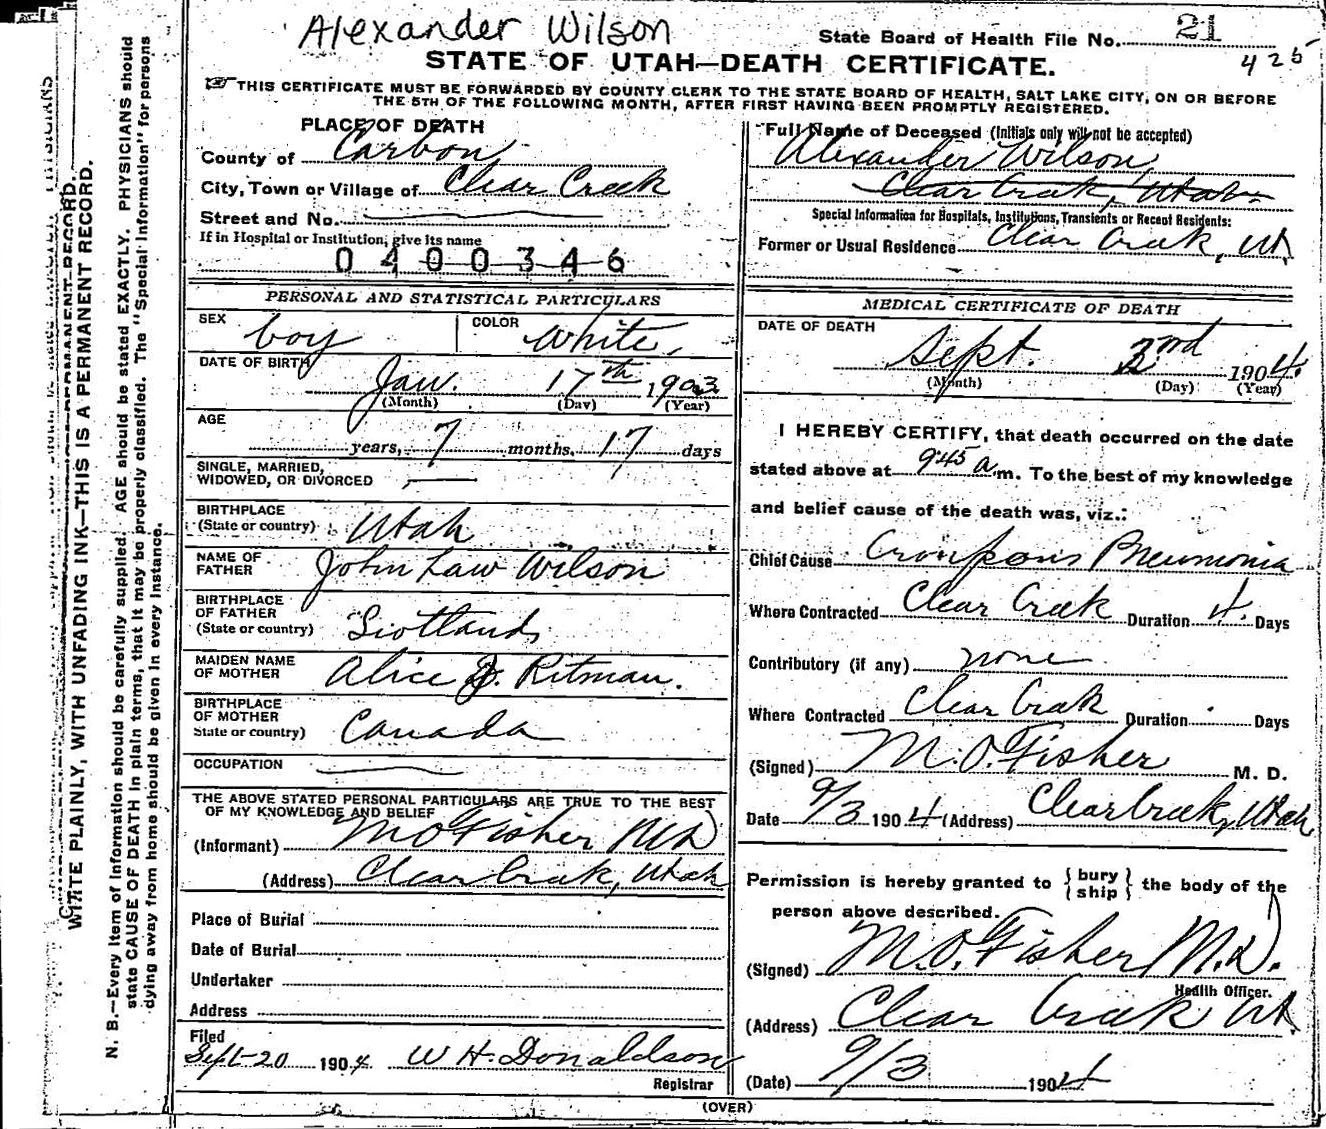 Alexander Wilson
State Board of Health File No. 21
425
STATE OF UTAH—DEATH CERTIFICATE.
☞ THIS CERTIFICATE MUST BE FORWARDED BY COUNTY CLERK TO THE STATE BOARD OF HEALTH, SALT LAKE CITY, ON OR BEFORE
THE 5TH OF THE FOLLOWING MONTH, AFTER FIRST HAVING BEEN PROMPTLY REGISTERED.
PLACE OF DEATH
County of Carbon
City, Town or Village of Clear Creek
Street and No.
If in Hospital or Institution, give its name
0400346
PERSONAL AND STATISTICAL PARTICULARS
SEX boy COLOR White.
DATE OF BIRTH Jan. 17th 1903
(Month) (Day) (Year)
AGE years, 7 months, 17 days
SINGLE, MARRIED,
WIDOWED, OR DIVORCED
BIRTHPLACE
(State or country) Utah
NAME OF
FATHER John Law Wilson
BIRTHPLACE
OF FATHER
(State or country) Scotland
MAIDEN NAME
OF MOTHER Alice J. Ritman.
BIRTHPLACE
OF MOTHER
State or country) Canada
OCCUPATION
THE ABOVE STATED PERSONAL PARTICULARS ARE TRUE TO THE BEST
OF MY KNOWLEDGE AND BELIEF
(Informant) M O Fisher MD
(Address) Clear Creek, Utah
Place of Burial
Date of Burial
Undertaker
Address
Filed
Sept-20 1904 W H. Donaldson
Registrar
Full Name of Deceased (Initials only will not be accepted)
Alexander Wilson,
Clear Creek, Utah
Special Information for Hospitals, Institutions, Transients or Recent Residents:
Former or Usual Residence Clear Creek, Ut.
MEDICAL CERTIFICATE OF DEATH
DATE OF DEATH
Sept. 3rd 1904.
(Month) (Day) (Year)
I HEREBY CERTIFY, that death occurred on the date
stated above at 9:45 a.m. To the best of my knowledge
and belief cause of the death was, viz.:
Chief Cause Croupous Pneumonia
Where Contracted Clear Creek Duration 4. Days
Contributory (if any) none
Where Contracted Clear Creek Duration Days
(Signed) M. O. Fisher M. D.
Date 9/3 1904 (Address) Clear Creek, Utah,
Permission is hereby granted to {bury
ship} the body of the
person above described.
(Signed) M. O. Fisher, M.D.
Health Officer.
(Address) Clear Creek Ut.
(Date) 9/3 1904
(OVER)
WRITE PLAINLY, WITH UNFADING INK—THIS IS A PERMANENT RECORD.
N. B.—Every item of information should be carefully supplied. AGE should be stated EXACTLY. PHYSICIANS should
state CAUSE OF DEATH in plain terms, that it may be properly classified. The "Special Information" for persons
dying away from home should be given in every instance.